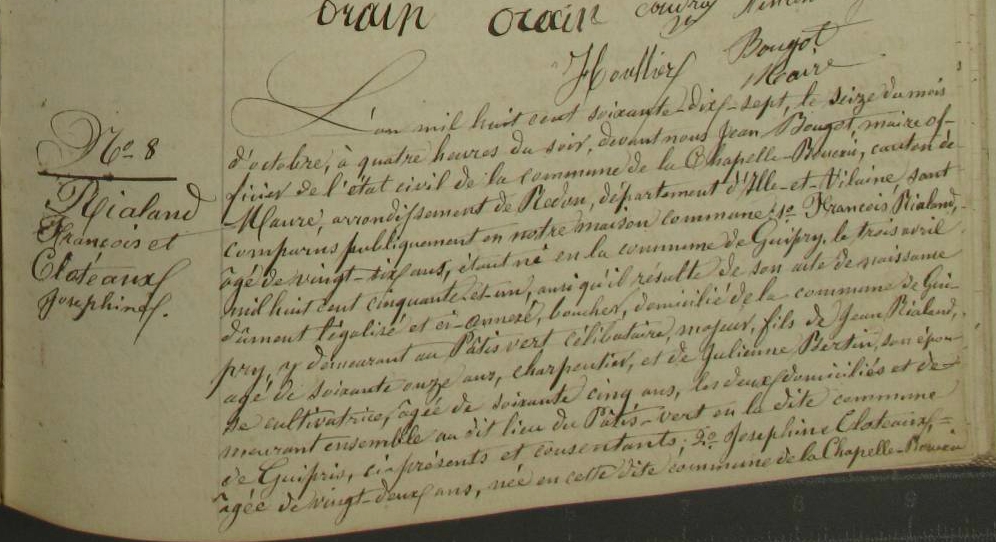 Orain Orain
Houllier Bougot
Maire
No 8
Rialand
François et
Clotéaux
Josephine.
L'an mil huit cent soixante-dix-sept, le seize du mois
d'octobre, à quatre heures du soir, devant nous Jean Bougot, maire of-
ficier de l'état civil de la commune de la Chapelle-Bouexic, canton de
Maure, arrondissement de Redon, département d'Ille-et-Vilaine sont
comparus publiquement en notre maison commune: 1o François Rialand,
âgé de vingt-six ans, étant né en la commune de Guipry, le trois avril
mil huit cent cinquante-et-un, ainsi qu'il résulte de son acte de naissance
dûment légalisé et ci-annexé, boucher, domicilié de la commune de Gui-
pry, y demeurant au Pâtis vert célibataire, majeur, fils de Jean Rialand,
agé de soixante onze ans, charpentier, et de Julienne Bertin, son épou-
se cultivatrice, âgée de soixante cinq ans, les deux domiciliés et de-
meurant ensemble au dit lieu du Pâtis-vert en la dite commune
de Guipris, ci-présents et consentants; 2o Josephine Cloteaux,
âgée de vingt-deux ans, née en cette dite commune de la Chapelle-Bouexic